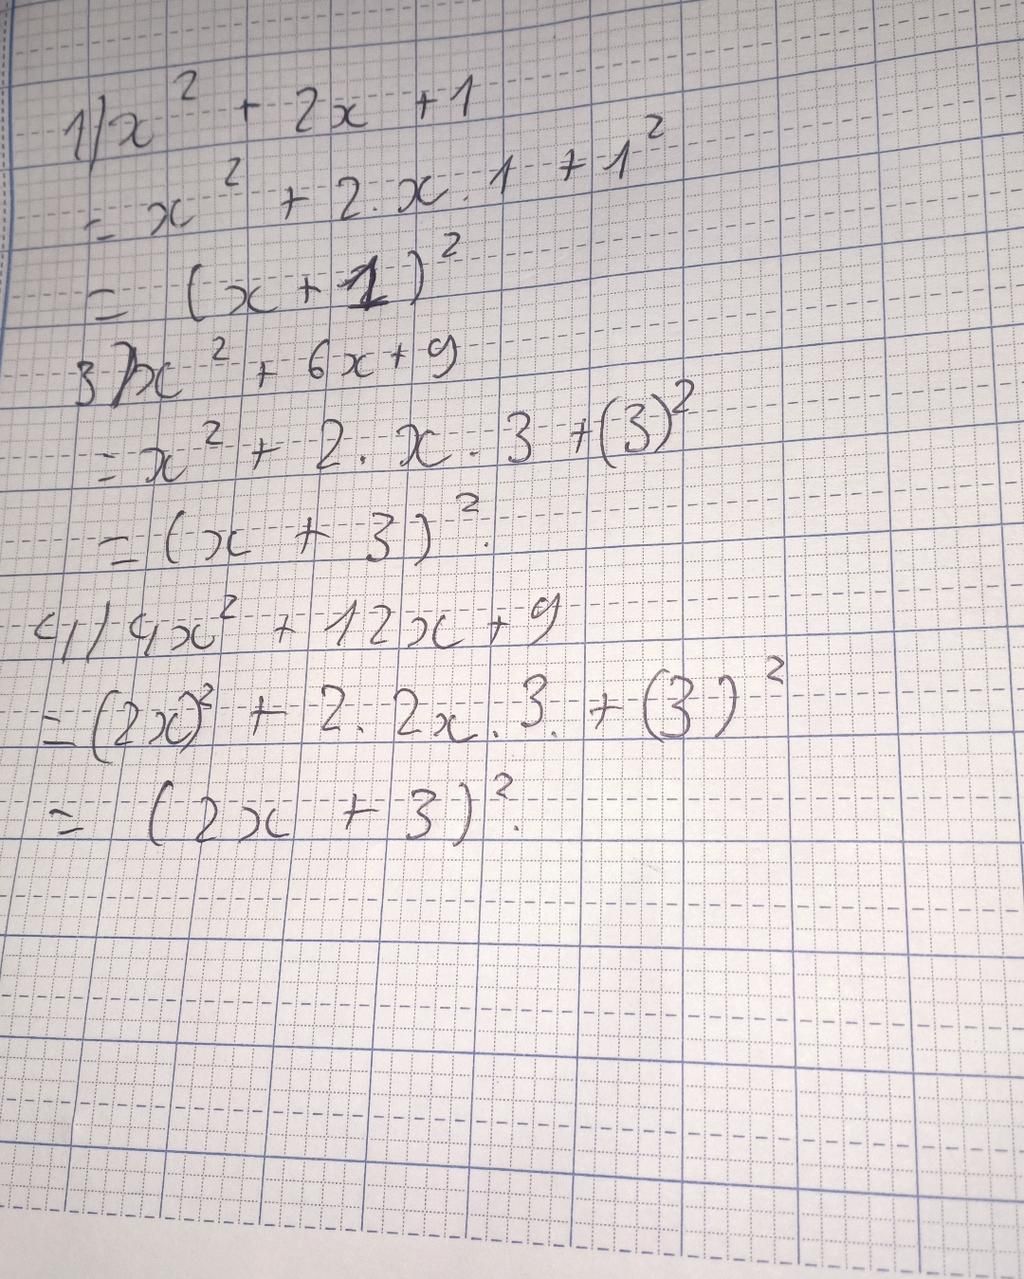 1) x² + 2x + 1
= x² + 2.x.1 + 1²
= (x + 1)²
3) x² + 6x + 9
= x² + 2.x.3 + (3)²
= (x + 3)².
4) 4x² + 12x + 9
= (2x)² + 2.2x.3. + (3)²
= (2x + 3)².